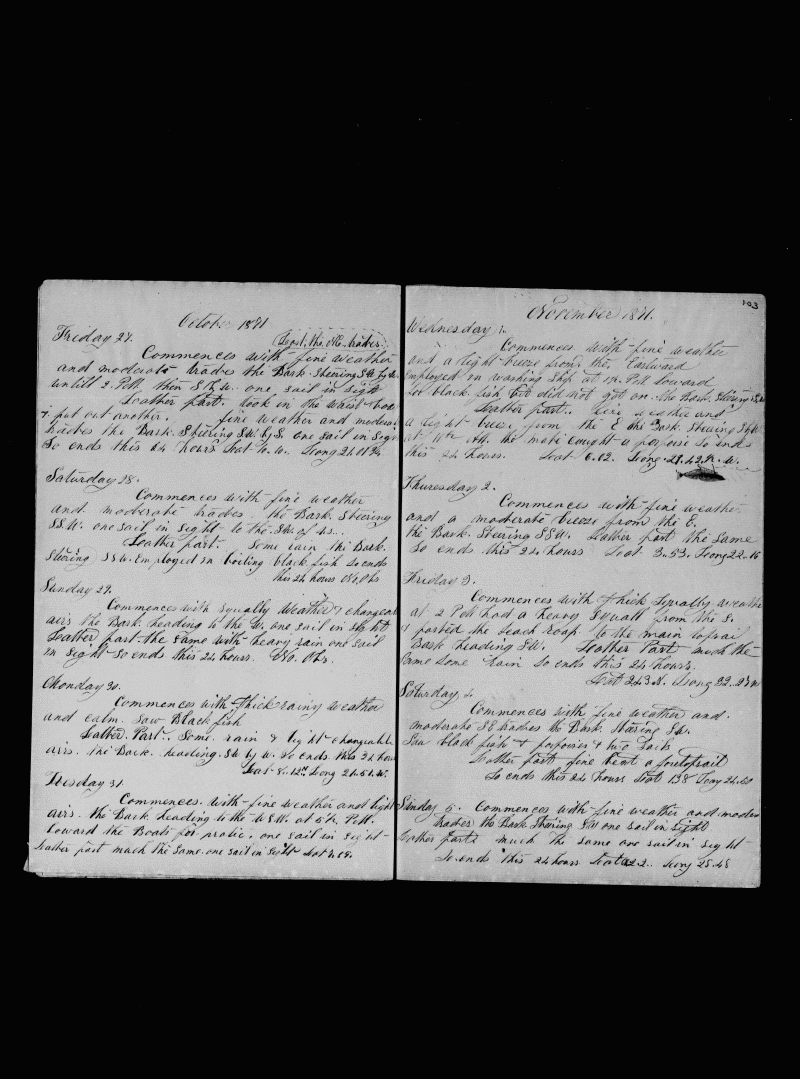 October 1871
Friday 27.
Lost the NE trades
Commences with fine weather
and moderate trades the Bark Steering SW by W.
untill 2 P.M. then S by W. one sail in sight
Leather part. took in the waist boat
& put out another. fine weather and moderate
trades the Bark. Steering SW by S. one sail in Sight
So ends this 24 hours Lat Long
Saturday 28.
Commences with fine weather
and moderate trades. the Bark. Steering
SSW. one sail in sight to the SW. of us.
Leather part. Some rain the Bark.
Steering SSW. Employed in boiling black fish So ends
this 24 hours No. Obs
Sunday 29.
Commences with squally weather & changeable
airs the Bark heading to the W. one sail in sight
Leatter part the same with heavy rain one sail
in Sight So ends this 24 hours. No. Obs.
Monday 30.
Commences with thick rainy weather
and calm. Saw Black fish
Latter. Part. Some rain & light changeable
airs. the Bark. heading. SW by W. So ends this 24 hours
Lat 8.12 Long 21.51.W.
Tuesday 31
Commences. with fine weather and light
airs. the Bark heading to the WSW. at 5h P.M.
Loward the Boats for practice. one sail in sight
Leather part much the same. one sail in Sight Lat
November 1871.
103
Wednesday 1.
Commences with fine weather
and a light breeze from the Eastward
Employed in washing Ship at P.M. Loward
for black fish but did not get on. the Bark. Steering
Leatter part. fine weather and
a light breeze from the E the Bark Steering
at AM. the mate caught a porpoise So ends
this 24 hours. Lat 6.02. Long. 21.42.W.
Thuresday 2.
Commences with fine weather
and a moderate breeze from the E.
the Bark. Steering SSW. Leather part the Same
So ends this 24 hours Lat 3.53. Long 22.16
Friday 3.
Commences with thick Squally weather
at 2 P.M had a heavy Squall from the S.
& parted the leach roap to the main topsail
Bark heading SW. Leather Part much the
same some rain So ends this 24 hours.
Lat 2.43.N. Long 22.
Saturday 4.
Commences with fine weather and.
moderate SE trades the Bark. Staring SW.
Saw black fish & porpoises & two Sails
Leather part fine bent a foretopsail
So ends this 24 hours Lat 1.38 Long 24.20
Sunday 5. Commences with fine weather and moderate
trades the Bark Staring SW one sail in sight
Leather part much the same one sail in sight
So ends this 24 hours Lat Long 25.45